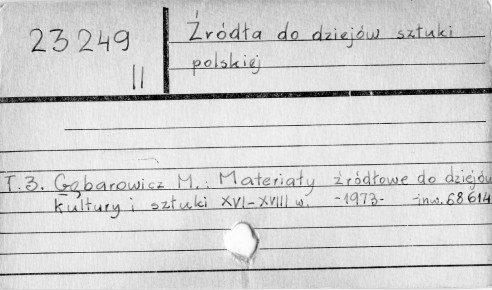 23249
II
Źródła do dziejów sztuki
polskiej
T.3. Gębarowicz M.: Materiały źródłowe do dziejów
kultury i sztuki XVI-XVIII w. -1973- inw. 68614